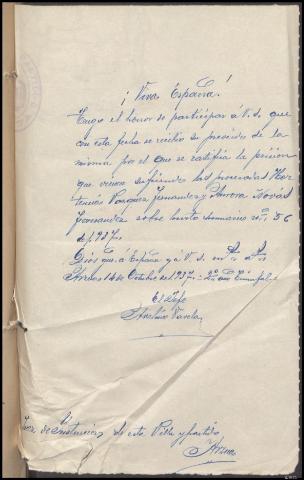 ¡ Viva España!
Tengo el honor de participar á V.S. que
con esta fecha se recibió su precioso de la
misma por el que se ratifica la prisión
que vienen sufriendo las procesadas Hor-
tensia Vazquez Fernandez y Aurora Novás
Fernandez sobre hurto sumario nº 56
de 1.937.
Dios gue. á España y á V.S. m. a.
Arzua 14 de Octubre de 1937 = 2º año Triunfal =
El Jefe
Varela
Juez de Instrucción de esta Villa y partido
Arzua